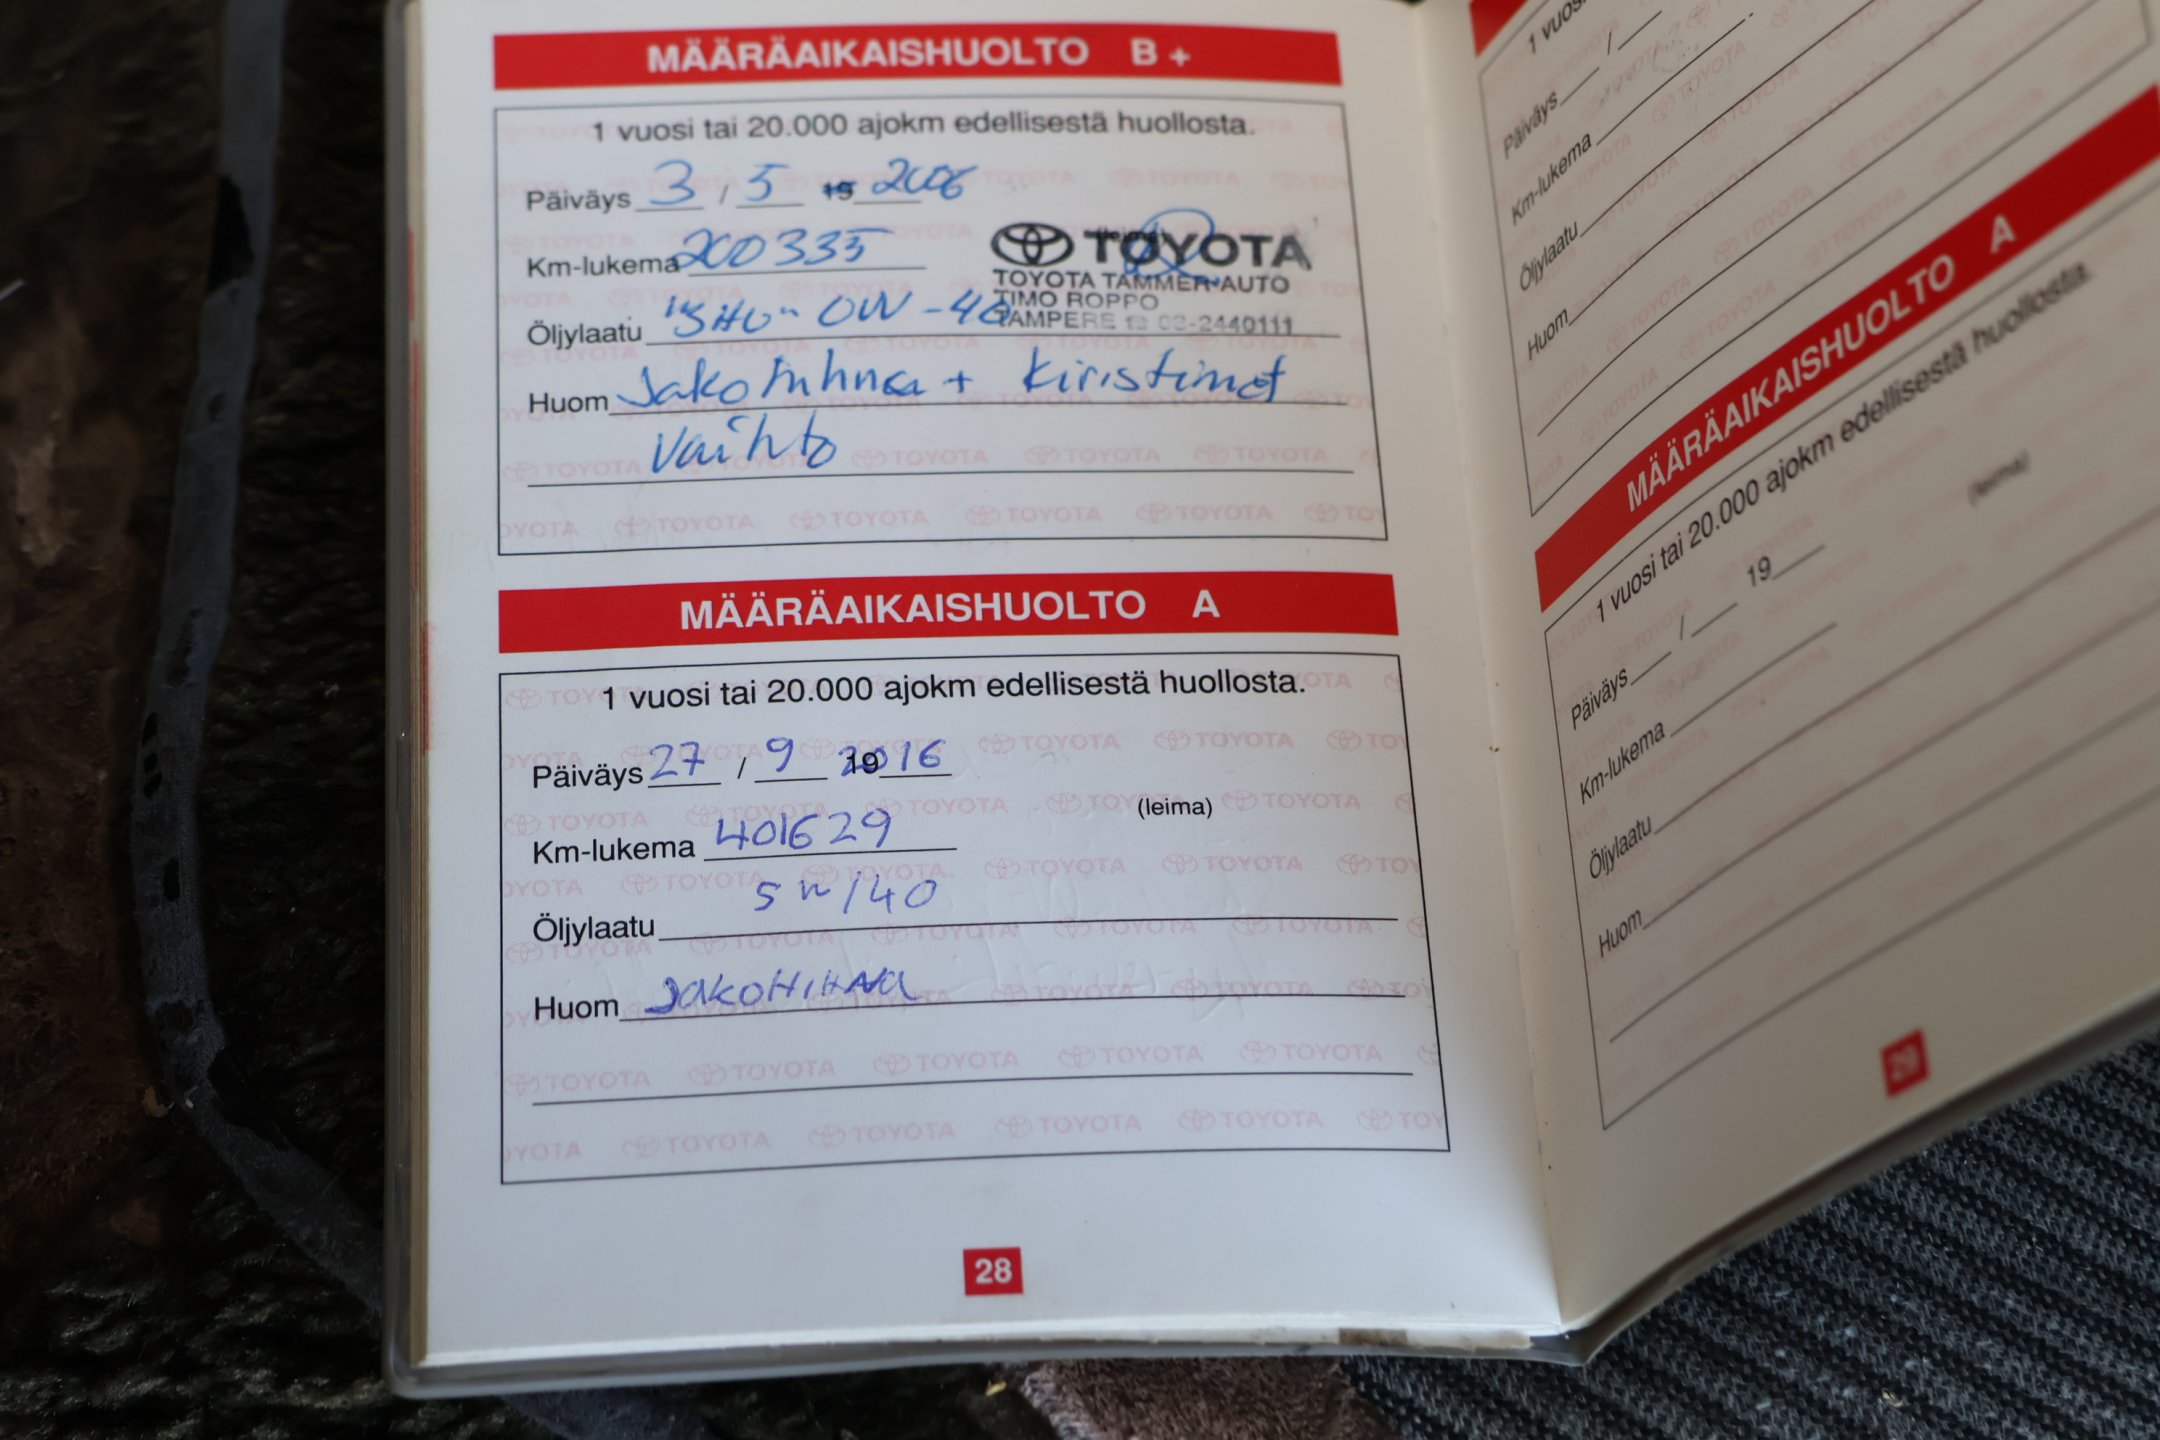 MÄÄRÄAIKAISHUOLTO B +
1 vuosi tai 20.000 ajokm edellisestä huollosta.
Päiväys 3 / 5 19 2006
Km-lukema 200335
TOYOTA
TOYOTA TAMMER-AUTO
TIMO ROPPO
TAMPERE 03-2440111
Öljylaatu 0W-40
Huom Jakohihna + kiristimet
vaihto
MÄÄRÄAIKAISHUOLTO A
1 vuosi tai 20.000 ajokm edellisestä huollosta.
Päiväys 27 / 9 2016
(leima)
Km-lukema 401629
Öljylaatu 5w/40
Huom Jakohihna
28
1 vuosi
Päiväys /
Km-lukema
Öljylaatu
Huom
MÄÄRÄAIKAISHUOLTO A
1 vuosi tai 20.000 ajokm edellisestä huollosta.
(leima)
Päiväys / 19
Km-lukema
Öljylaatu
Huom
29